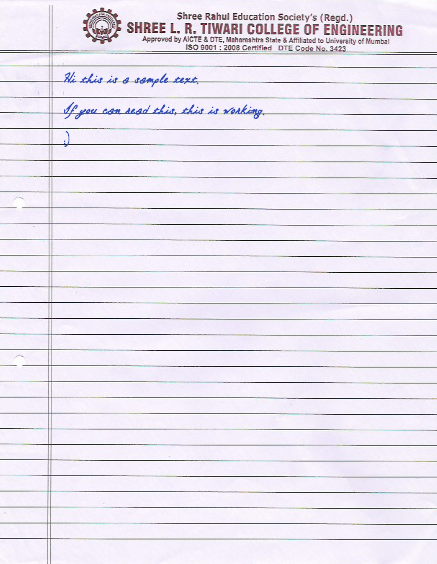 Shree Rahul Education Society's (Regd.)
SHREE L. R. TIWARI COLLEGE OF ENGINEERING
Approved by AICTE & DTE, Maharashtra State & Affiliated to University of Mumbai
ISO 9001 : 2008 Certified DTE Code No. 3423
Hi this is a sample text.
If you can read this, this is working.
)